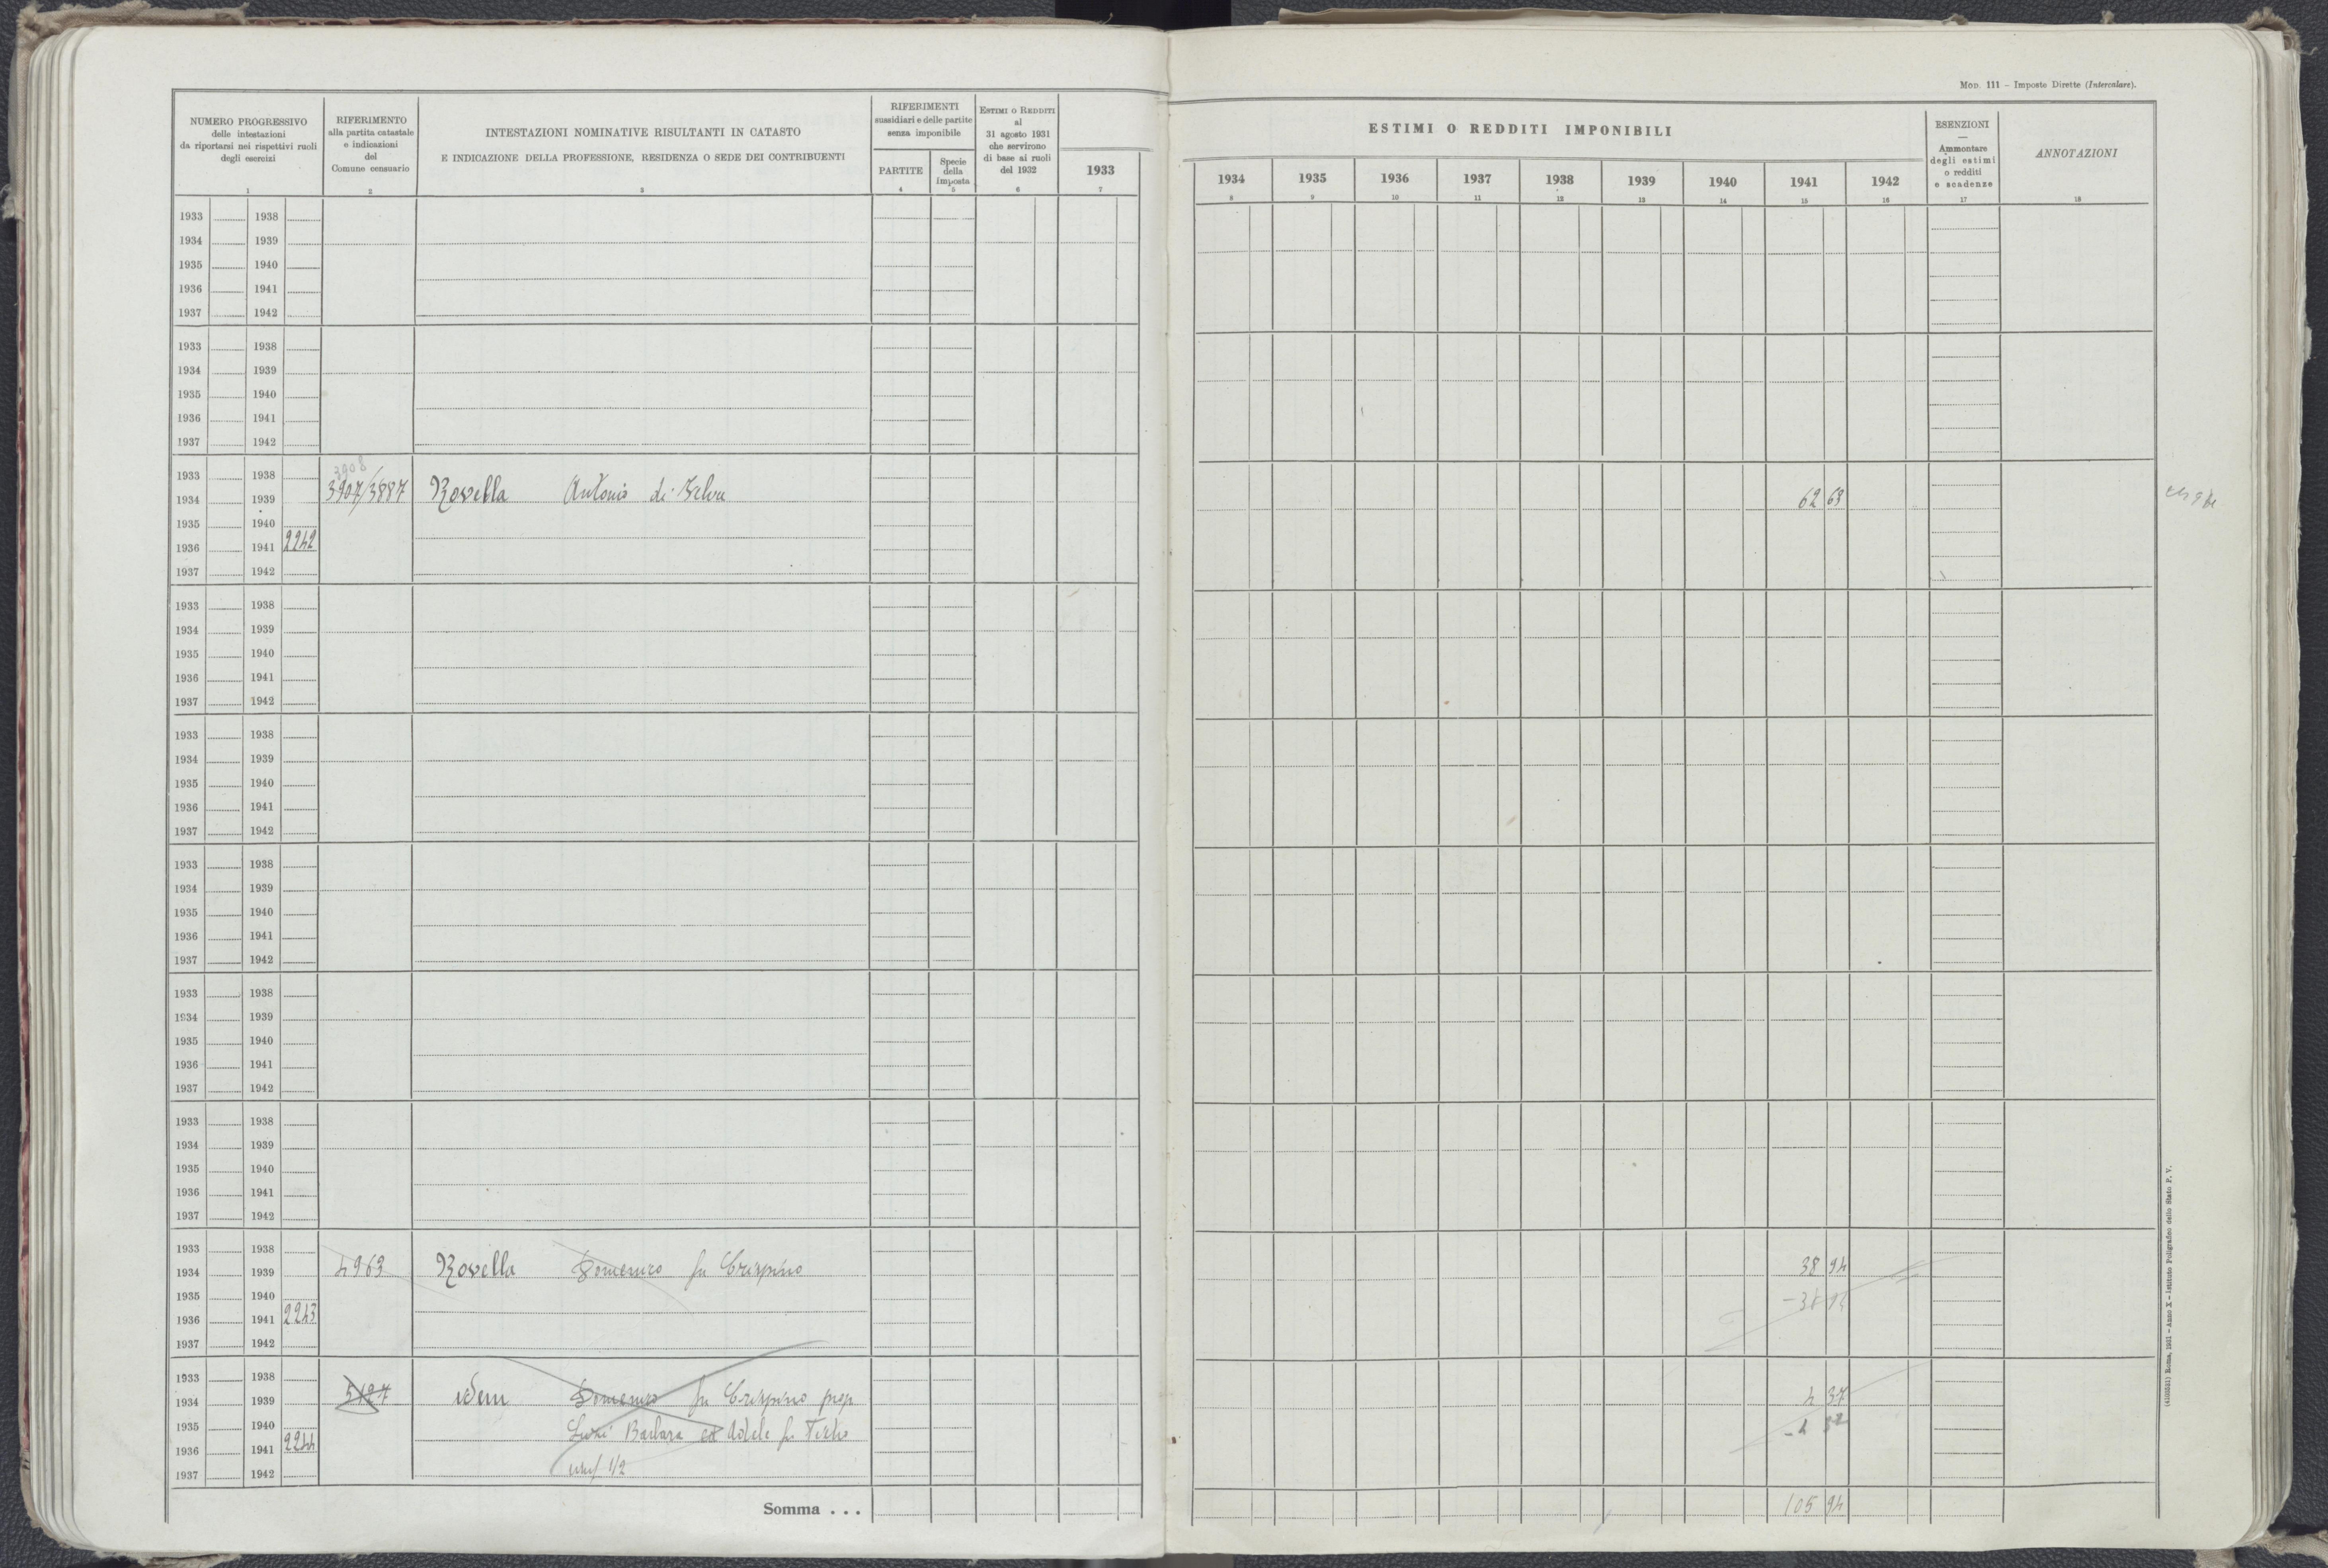 MOD. 111 – Imposte Dirette (Intercalare).
NUMERO PROGRESSIVO
delle intestazioni
da riportarsi nei rispettivi ruoli
degli esercizi
1
RIFERIMENTO
alla partita catastale
e indicazioni
del
Comune censuario
2
INTESTAZIONI NOMINATIVE RISULTANTI IN CATASTO
E INDICAZIONE DELLA PROFESSIONE, RESIDENZA O SEDE DEI CONTRIBUENTI
3
RIFERIMENTI
sussidiari e delle partite
senza imponibile
PARTITE
4
Specie
della
imposta
5
ESTIMI O REDDITI
al
31 agosto 1931
che servirono
di base ai ruoli
del 1932
6
1933
7
ESTIMI O REDDITI IMPONIBILI
1934 1935 1936 1937 1938 1939 1940 1941 1942
8 9 10 11 12 13 14 15 16
ESENZIONI
—
Ammontare
degli estimi
o redditi
e scadenze
17
ANNOTAZIONI
18
1933 1938
1934 1939
1935 1940
1936 1941
1937 1942
1933 1938
1934 1939
1935 1940
1936 1941
1937 1942
3908
1933 1938
1934 1939 3907/3887 Rovella Antonio di 62 63
1935 1940
1936 1941 2242
1937 1942
1933 1938
1934 1939
1935 1940
1936 1941
1937 1942
1933 1938
1934 1939
1935 1940
1936 1941
1937 1942
1933 1938
1934 1939
1935 1940
1936 1941
1937 1942
1933 1938
1934 1939
1935 1940
1936 1941
1937 1942
1933 1938
1934 1939
1935 1940
1936 1941
1937 1942
1933 1938
1934 1939 4963 Rovella Domenico fu Crispino 38 94
1935 1940
1936 1941 2243
1937 1942
1933 1938
1934 1939 5127 idem Domenico fu Crispino prop
1935 1940 Barbara ed Adele fu 4 37
1936 1941 2244
1937 1942 usuf 1/2
Somma . . . 105 94
(4103231) Roma, 1931 – Anno X – Istituto Poligrafico dello Stato P. V.